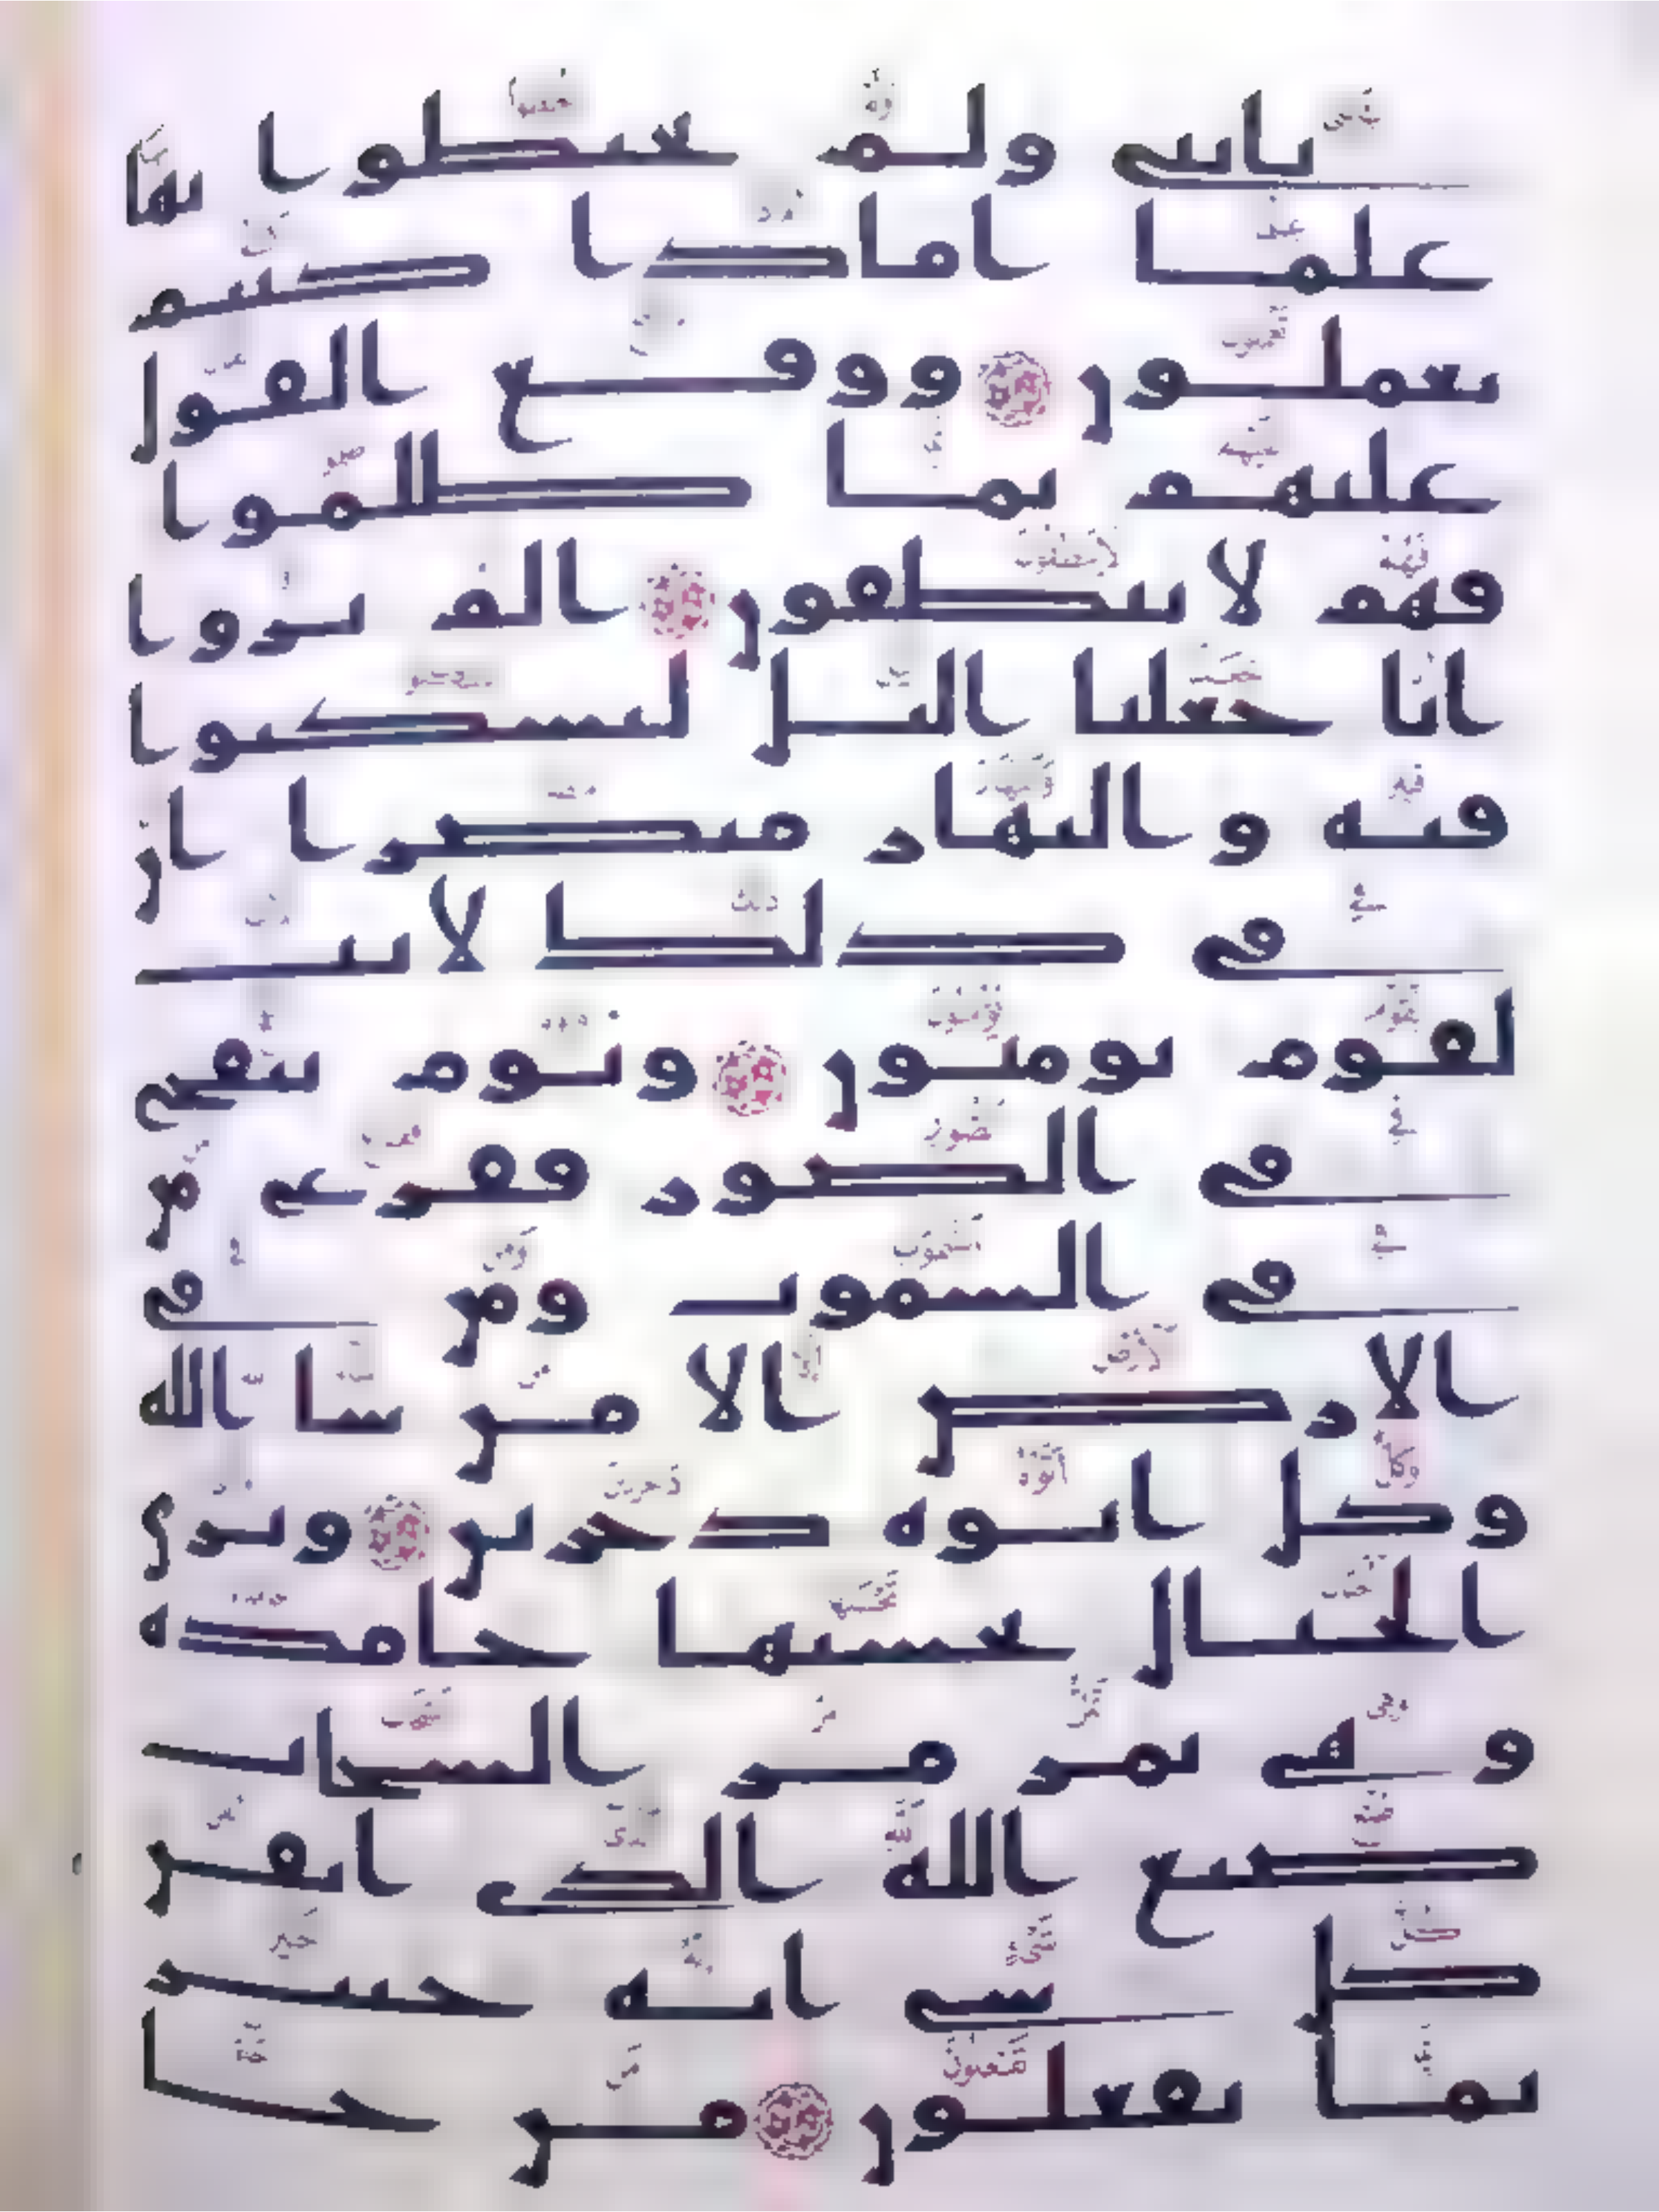 باىتى ولم تحيطوا بها
علما اماذا كنتم
تعملون ووقع القول
عليهم بما ظلموا
فهم لا ينطقون الم يروا
انا جعلنا اليل ليسكنوا
فيه والنهار مبصرا ان
فى ذلك لايت
لقوم يومنون ويوم ينفخ
فى الصور ففزع من
فى السموت ومن فى
الارض الا من شا الله
وكل اتوه دخرين وترى
الجبال تحسبها جامدة
وهى تمر مر السحاب
صنع الله الذى اتقن
كل شى انه خبير
بما تفعلون من جا